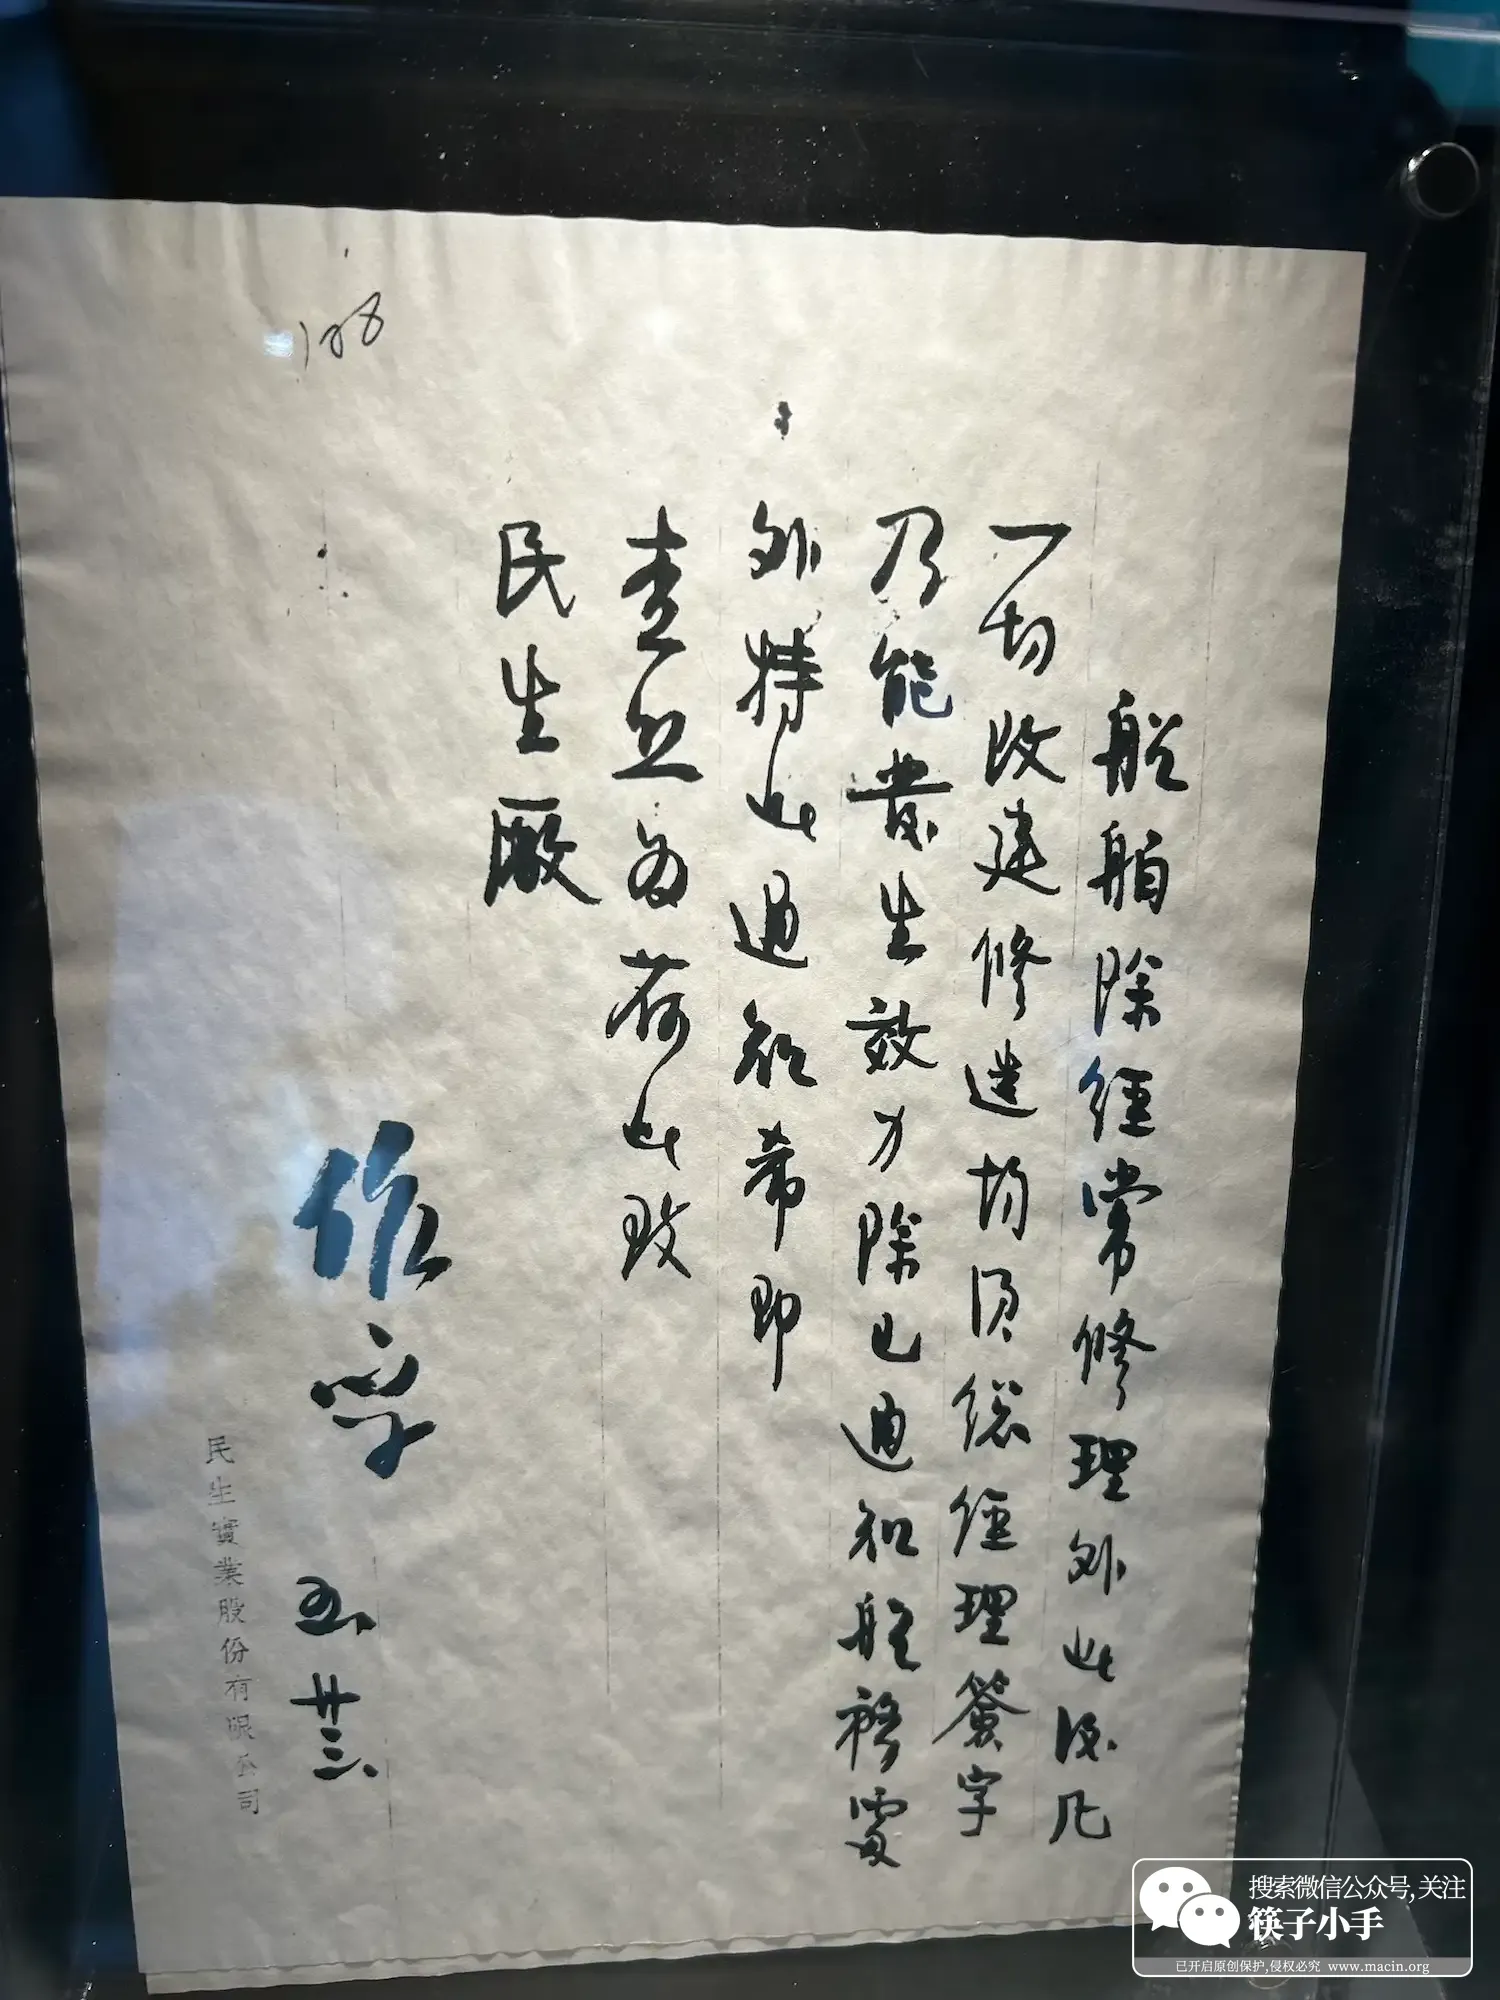 船舶除經常修理外此後凡
一切改建修造均須總經理簽字
乃能發生效力除已通知船務處
外特此通知希即
查照為荷此致
民生廠
作孚
五 廿三
民生實業股份有限公司
108
搜索微信公众号,关注
筷子小手
已开启原创保护,侵权必究 www.macin.org